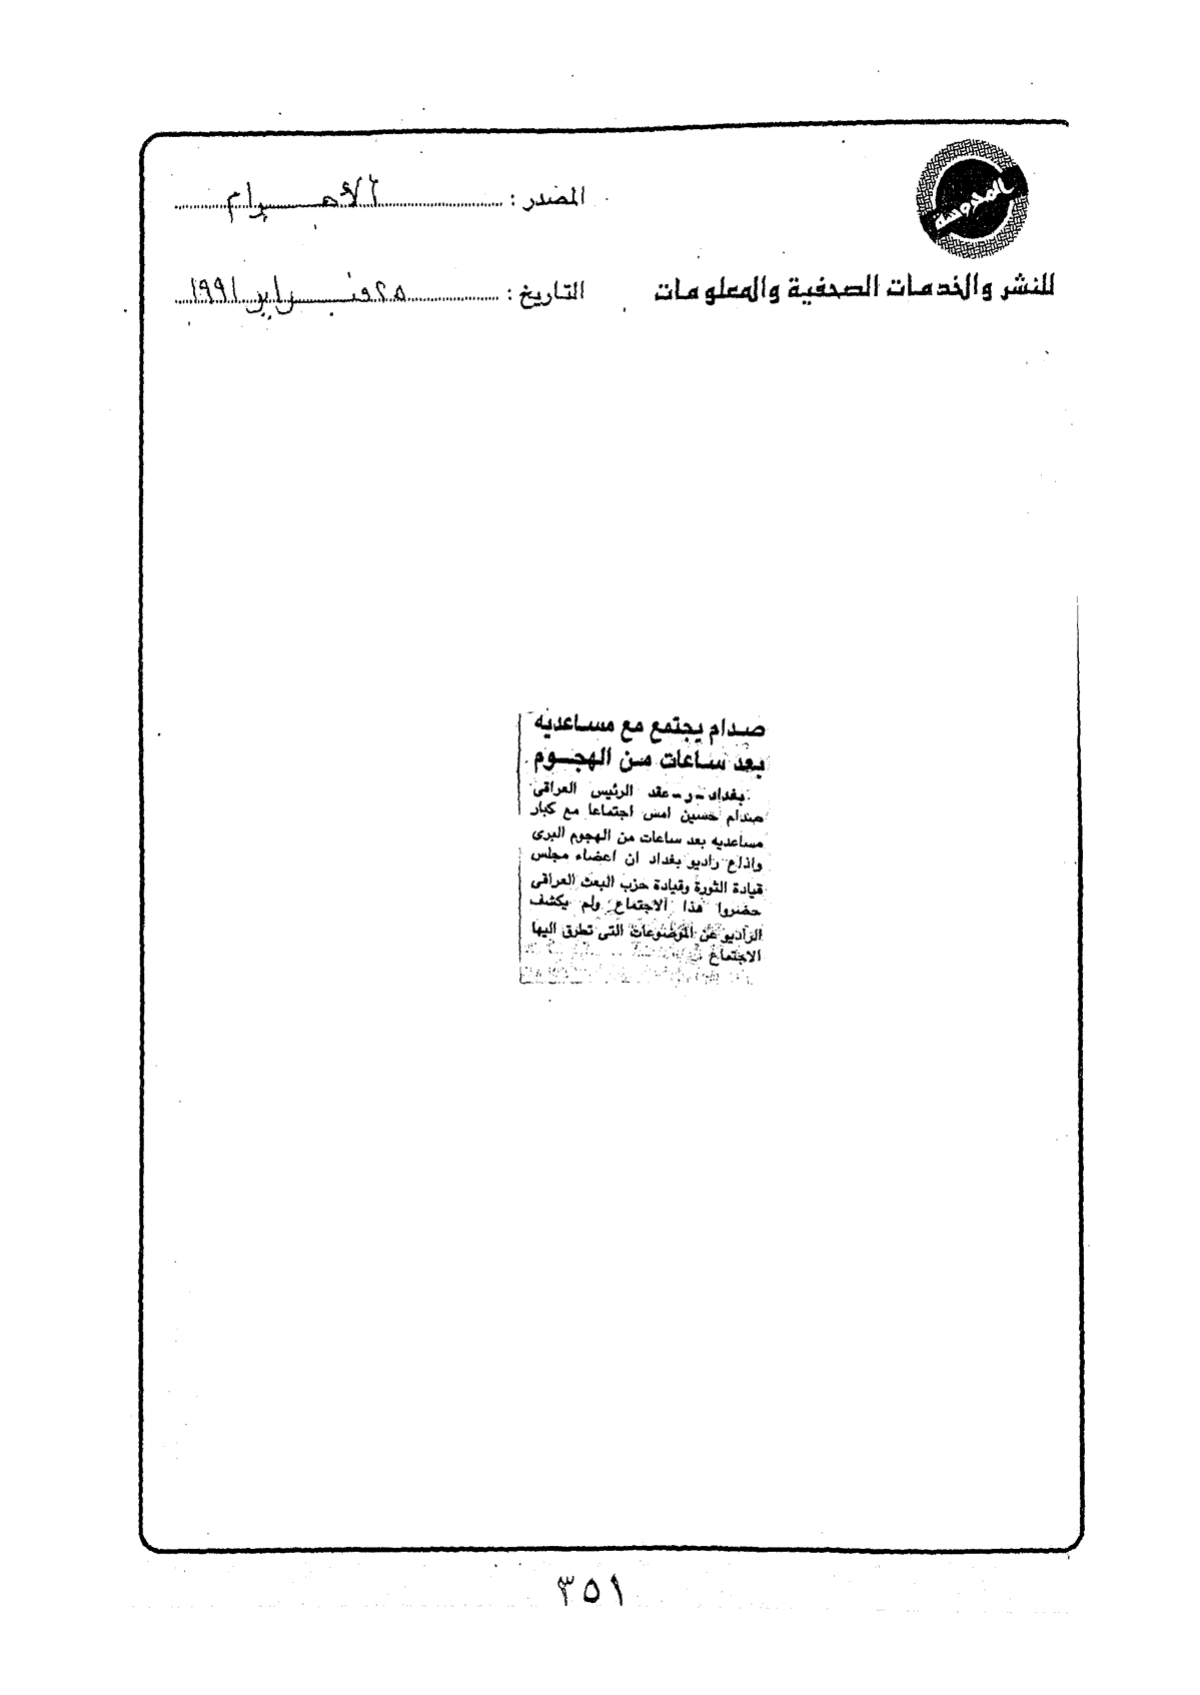 المدوسة
المصدر : الأهرام
للنشر والخدمات الصحفية والمعلومات
التاريخ : ٢٥ فبراير ١٩٩١
صدام يجتمع مع مساعديه
بعد ساعات من الهجوم
بغداد - ر - عقد الرئيس العراقى
صدام حسين امس اجتماعا مع كبار
مساعديه بعد ساعات من الهجوم البرى
واذاع راديو بغداد ان اعضاء مجلس
قيادة الثورة وقيادة حزب البعث العراقى
حضروا هذا الاجتماع ولم يكشف
الراديو عن الموضوعات التى تطرق اليها
الاجتماع
٣٥١